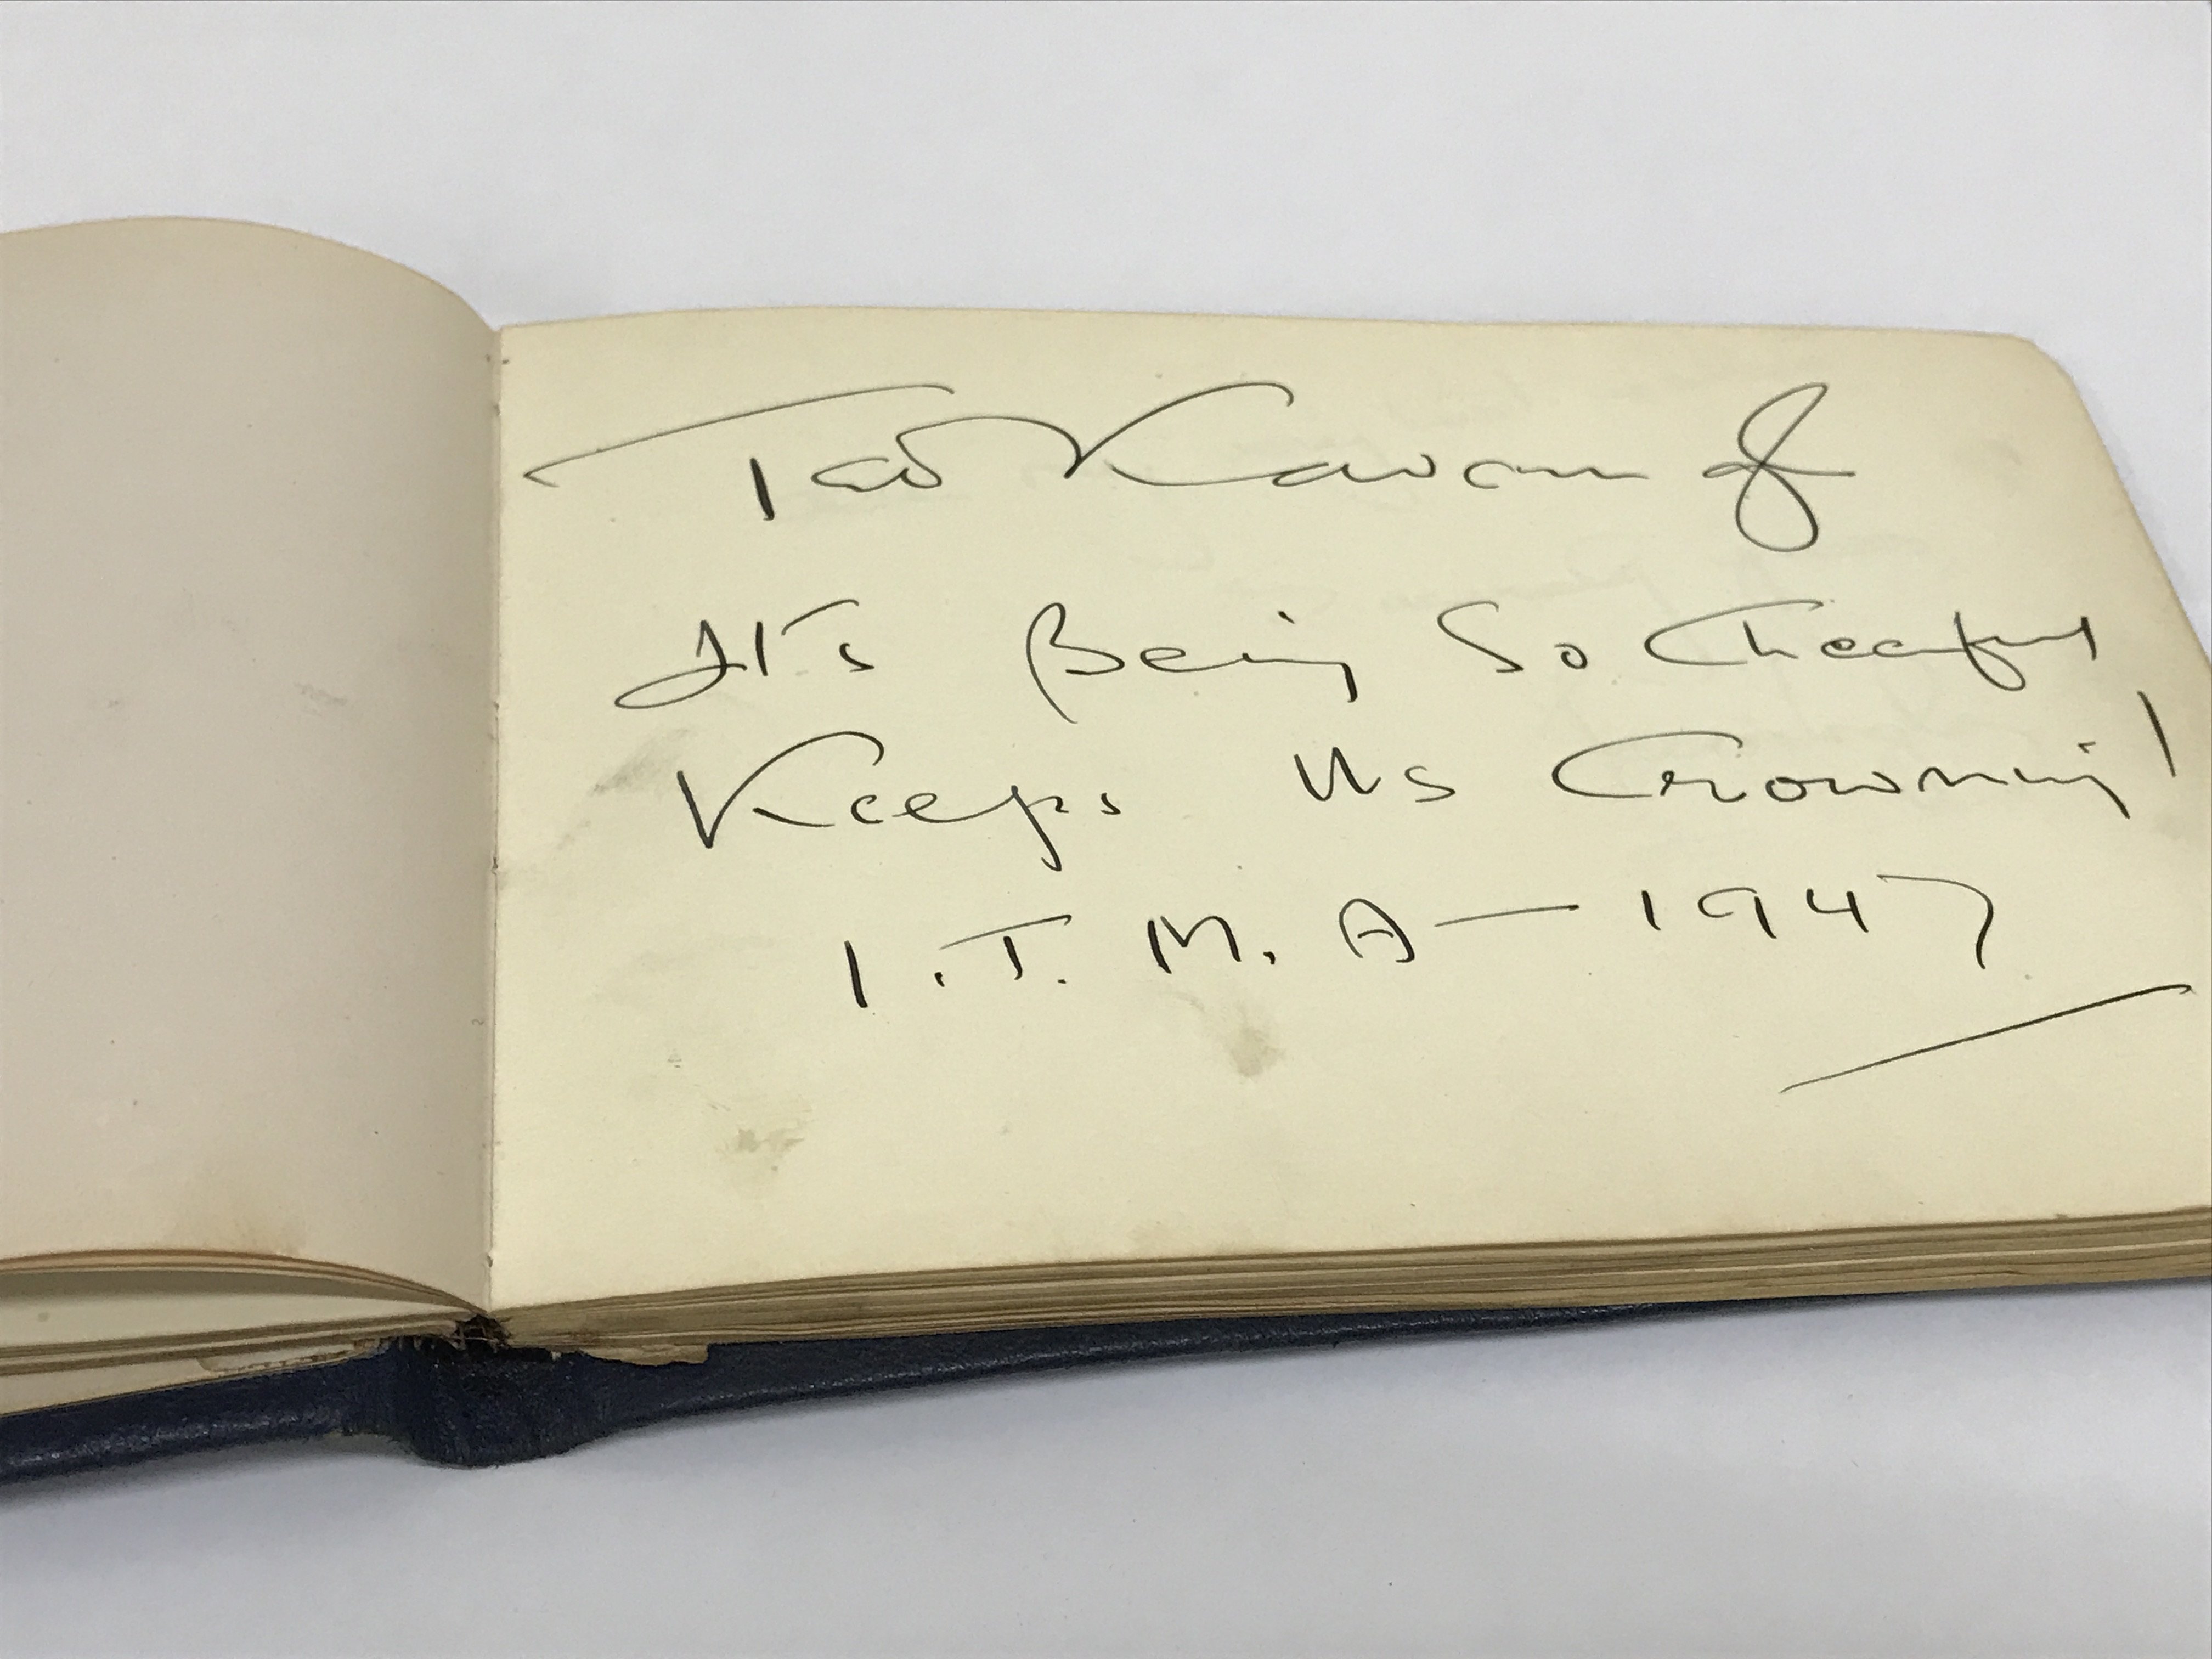 Ted Kavanagh
It's Being So Cheerful
Keeps Us Crowning!
I.T.M.A — 1947